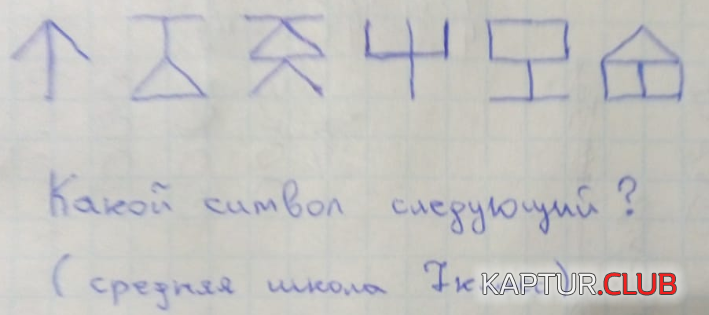 Какой символ следующий?
(средняя школа 7
KAPTUR.CLUB